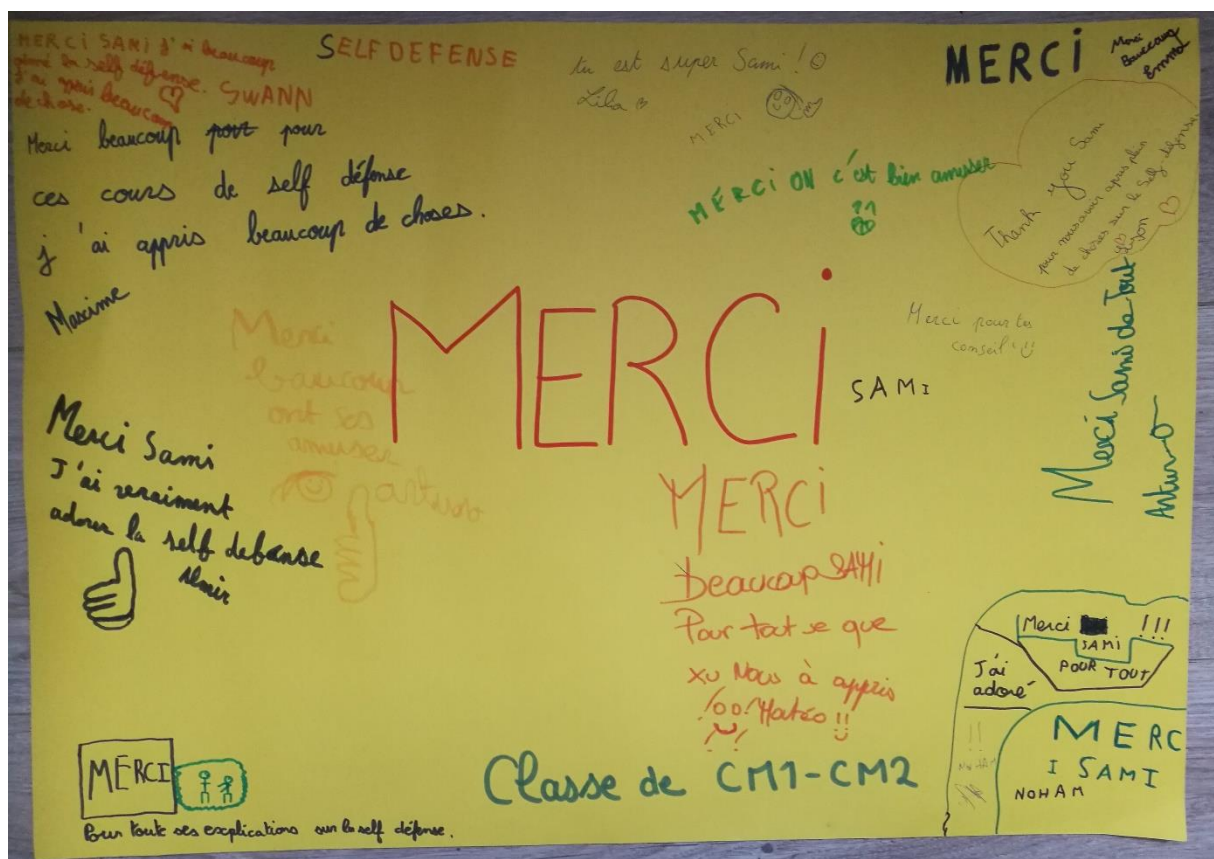 MERCi SAMi J'ai beaucoup
aimé la self défense. SWANN
J'ai appris beaucoup
de chose.
SELF DEFENSE
tu est super Sami !
Lila
MERCI
MERCi
Merci
Beaucoup
Emma
Merci beaucoup pour
ces cours de self défense
j'ai appris beaucoup de choses.
Maxime
MERCi ON c'est bien amuser
Thank you Sami
pour nous avoir apris plein
de choses sur le Self-défense
Lyson
Merci
baucoup
ont ses
amuser
arturo
MERCi
SAMI
Merci pour tes
conseil
Merci Sami de Tout
Arturo
Merci Sami
J'ai vraiment
adorer la self defense
Almir
MERCi
beaucoup SAMi
Pour tout se que
tu Nous à appris
Matéo !!
Merci !!!
SAMi
POUR TOUT
J'ai
adoré
!!
NOHAM
MERC
I SAMI
NOHAM
MERCI
Pour toute ses explications sur la self défense.
Classe de CM1-CM2